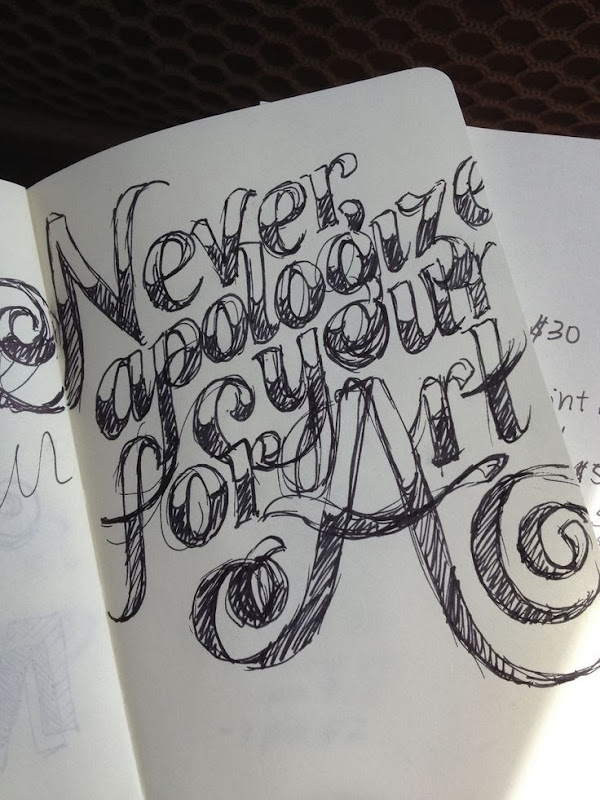 Never,
apologize
for your
Art
$30